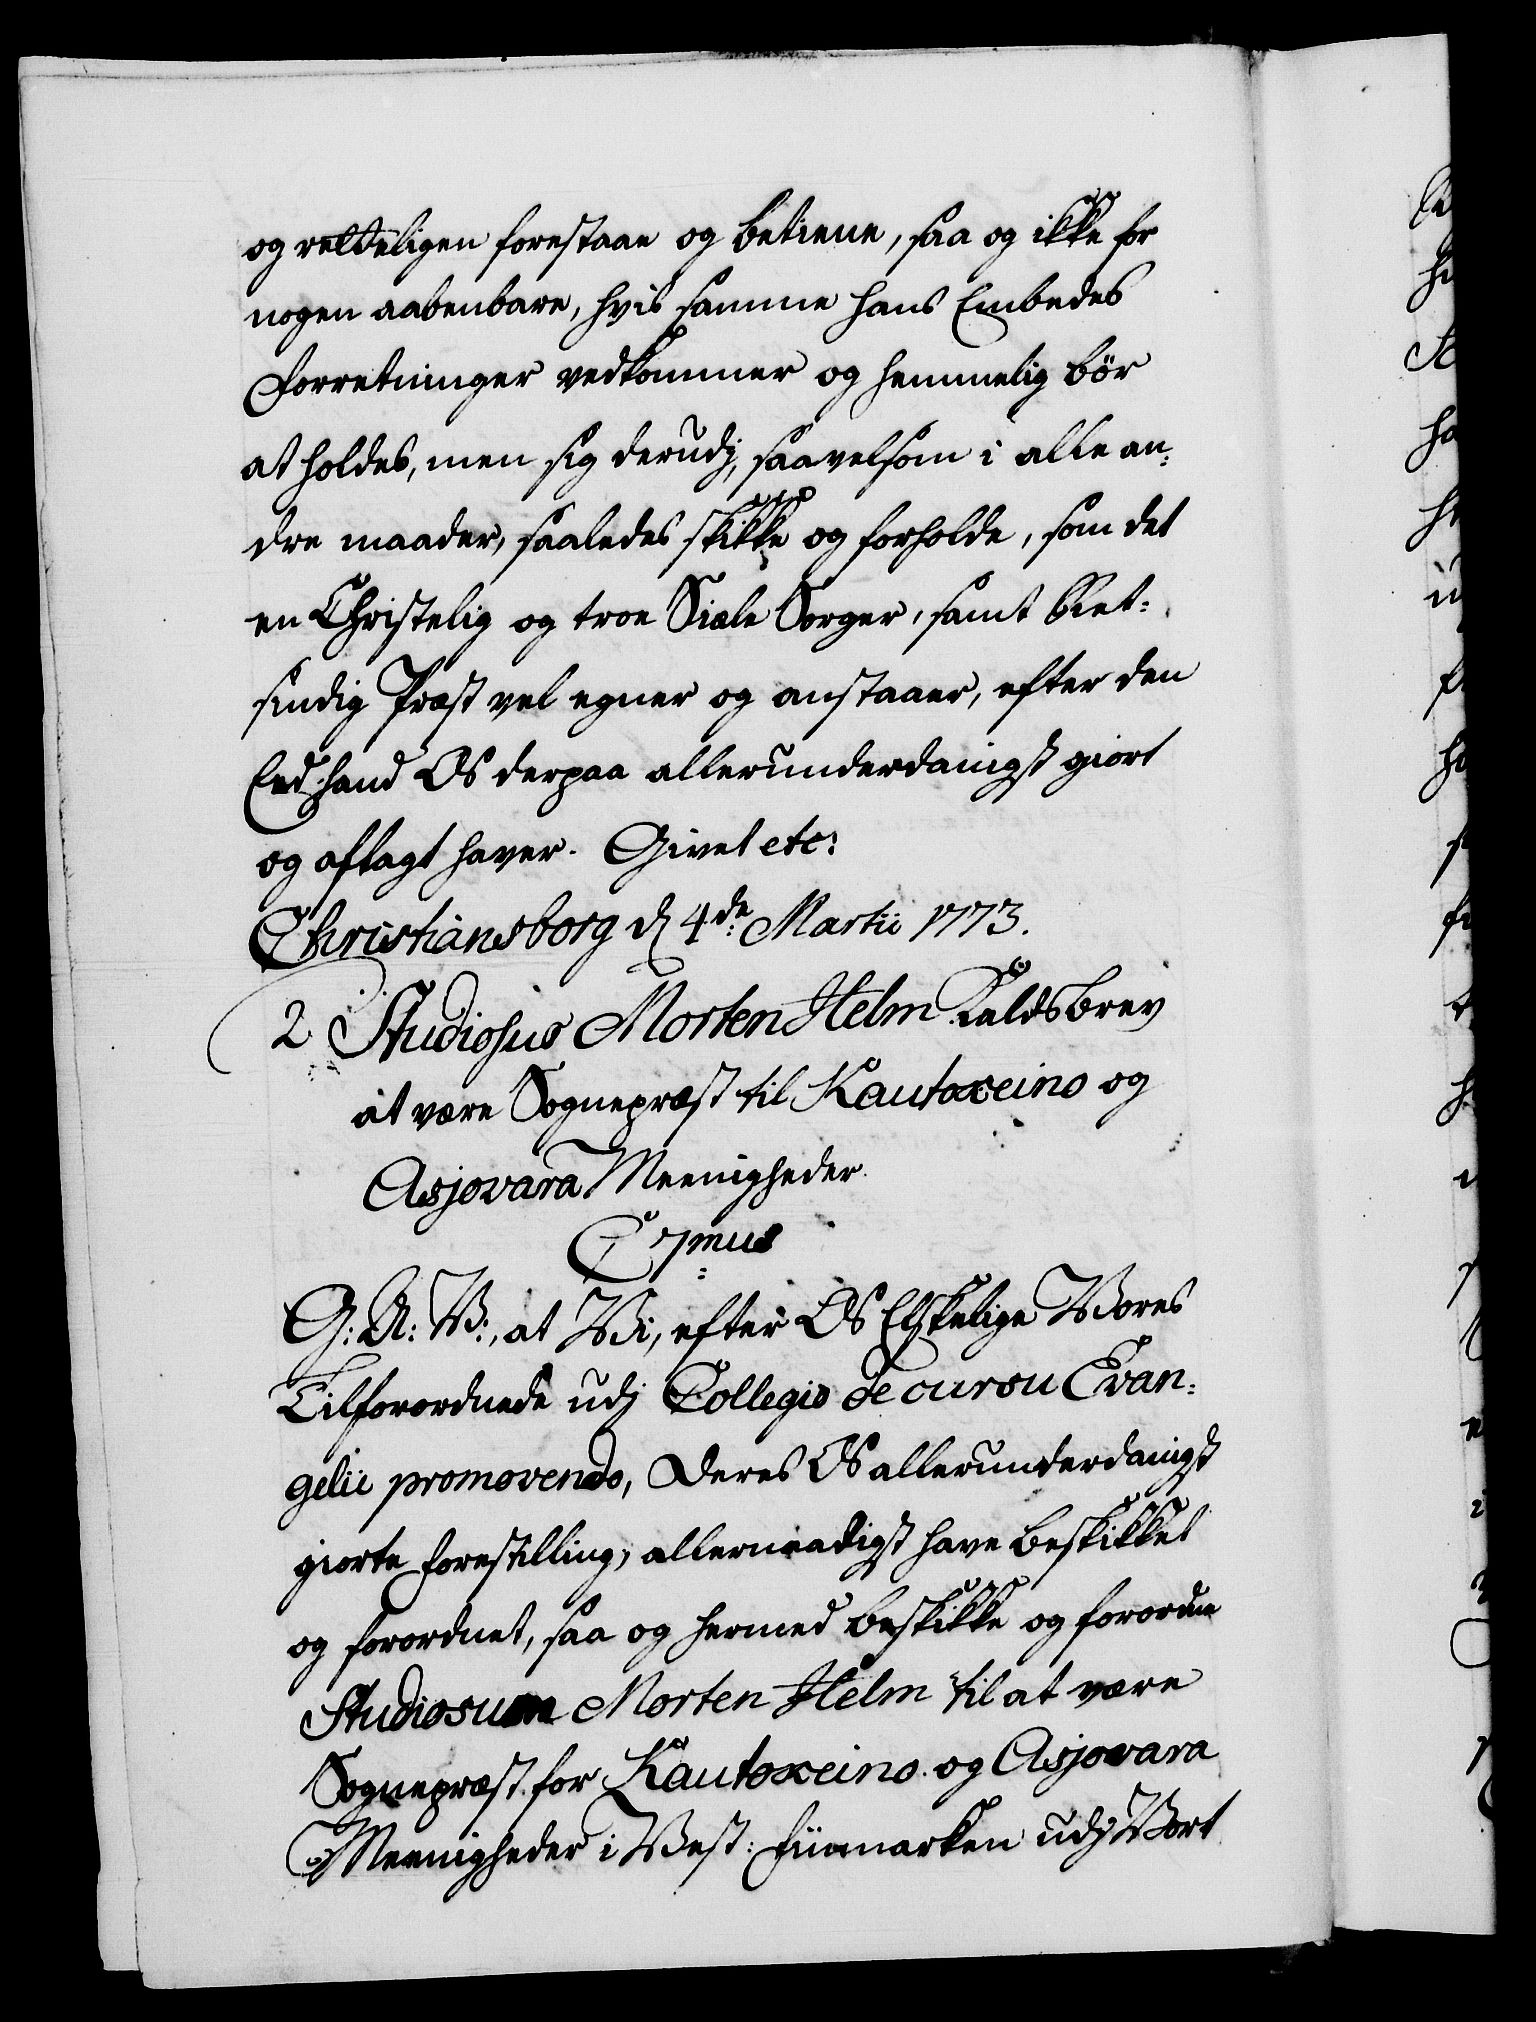 og retteligen forestaae og betiene, saa og ikke for
nogen aabenbare, hvis samme hans Embedes
Forretninger vedkommer og hemmelig bör
at holdes, men sig derudj, saavelsom i alle an:
dre maader, saaledes skikke og forholde, som det
en Christelig og troe Siæle Sørger, samt Ret:
sindig Præst vel egner og anstaaer, efter den
Eed hand Os derpaa allerunderdanigst giort
og aflagt haver. Givet etc:
Christiansborg d 4de Martii 1773.
2 Studiosus Morten Helm Kaldsbrev
at være Sognepræst til Kautoxeino og
Asjovara Meenigheder.
C 7mus
G: A: V:, at Vi, efter Os Elskelige Vores
Tilforordnede udj Collegio de cursu Evan:
gelii promovendo, Deres Os allerunderdanigst
giorte Forestilling, allernaadigst have beskikket
og forordnet, saa og hermed beskikke og forordne
Studiosum Morten Helm til at være
Sognepræst for Kautoxeino og Asjovara
Meenigheder i Vest: Finmarken udj Vort